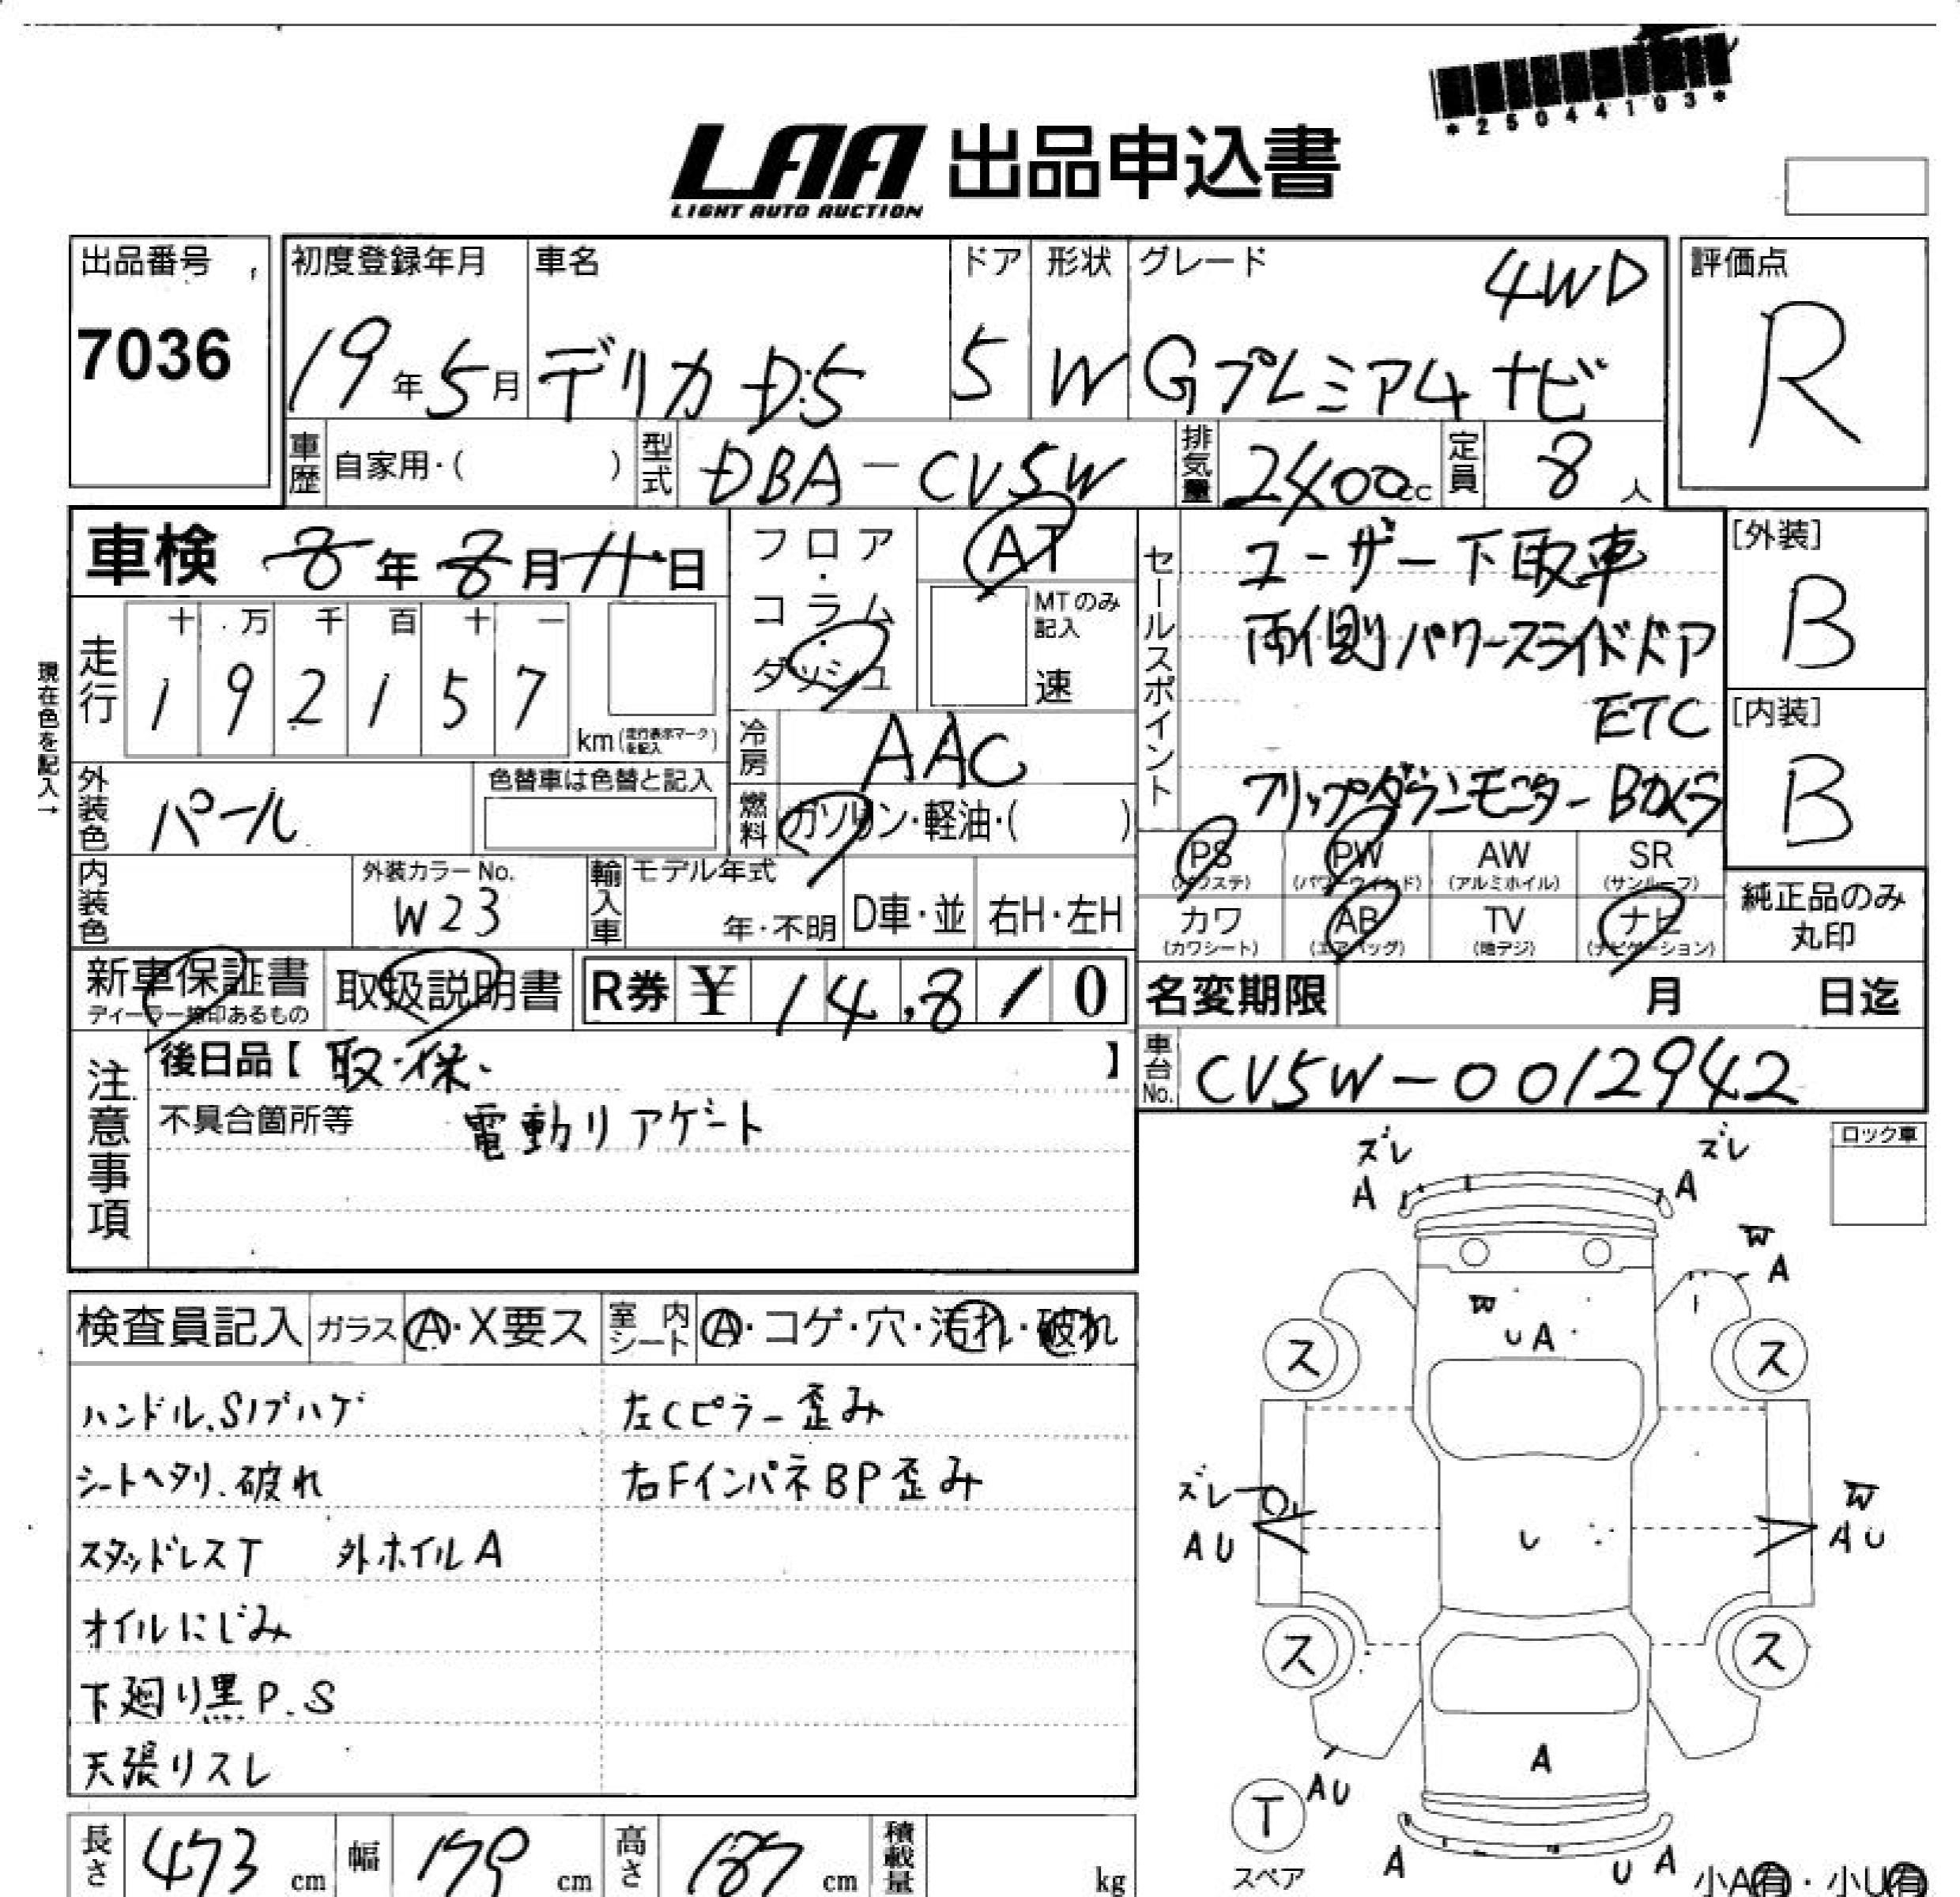 *25044103*
LAA 出品申込書
LIGHT AUTO AUCTION
出品番号
7036
初度登録年月
19年5月
車名
デリカ D:5
ドア
5
形状
W
グレード
4WD
Gプレミア4 ナビ
評価点
R
車歴 自家用・( )
型式 DBA-CV5W
排気量 2400cc
定員 8人
車検 8年8月11日
フロア・コラム・ダッシュ
AT
MTのみ記入
速
セールスポイント
ユーザー下取車
両側パワースライドドア
ETC
フリップダウンモニター Bカメラ
[外装]
B
[内装]
B
現在色を記入→
走行
十 万 千 百 十 一
1 9 2 1 5 7
km(走行表示マークを記入)
冷房 AAC
燃料 ガソリン・軽油・( )
外装色 パール
色替車は色替と記入
内装色
外装カラーNo.
W23
輸入車
モデル年式
年・不明
D車・並
右H・左H
PS
(パワステ)
PW
(パワーウインド)
AW
(アルミホイル)
SR
(サンルーフ)
カワ
(カワシート)
AB
(エアバッグ)
TV
(地デジ)
ナビ
(ナビゲーション)
純正品のみ
丸印
新車保証書
ディーラー捺印あるもの
取扱説明書
R券 ¥ 14,810
名変期限 月 日迄
注意事項
後日品【 取・保. 】
不具合箇所等 電動リアゲート
車台No. CV5W-0012942
ロック車
検査員記入
ガラス A・X要ス
室内シート A・コゲ・穴・汚れ・破れ
ハンドル.S1ブハゲ
左Cピラー歪み
シートヘタリ.破れ
右FインパネBP歪み
スタッドレスT 外ホイルA
オイルにじみ
下廻り黒P.S
天張リスレ
ズレ
A
ズレ
A
W
A
W
UA
ス
ス
ズレ
AU
U
W
AU
ス
ス
A
AU
T
スペア
A
U A
小A有・小U有
長さ 473 cm
幅 179 cm
高さ 187 cm
積載量 kg